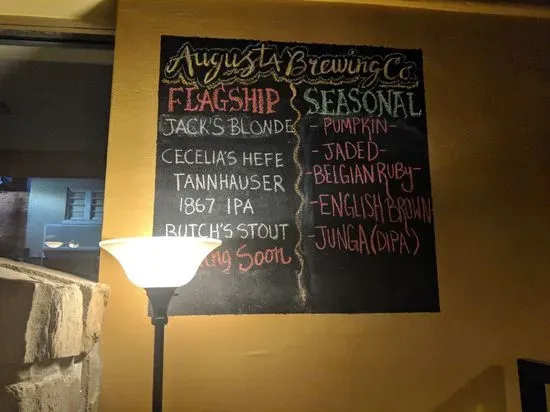 Augusta Brewing Co.
FLAGSHIP
JACK'S BLONDE
CECELIA'S HEFE
TANNHAUSER
1867 IPA
BUTCH'S STOUT
Soon
SEASONAL
- PUMPKIN -
- JADED -
- BELGIAN RUBY -
- ENGLISH BROWN
- JUNGA (DIPA)